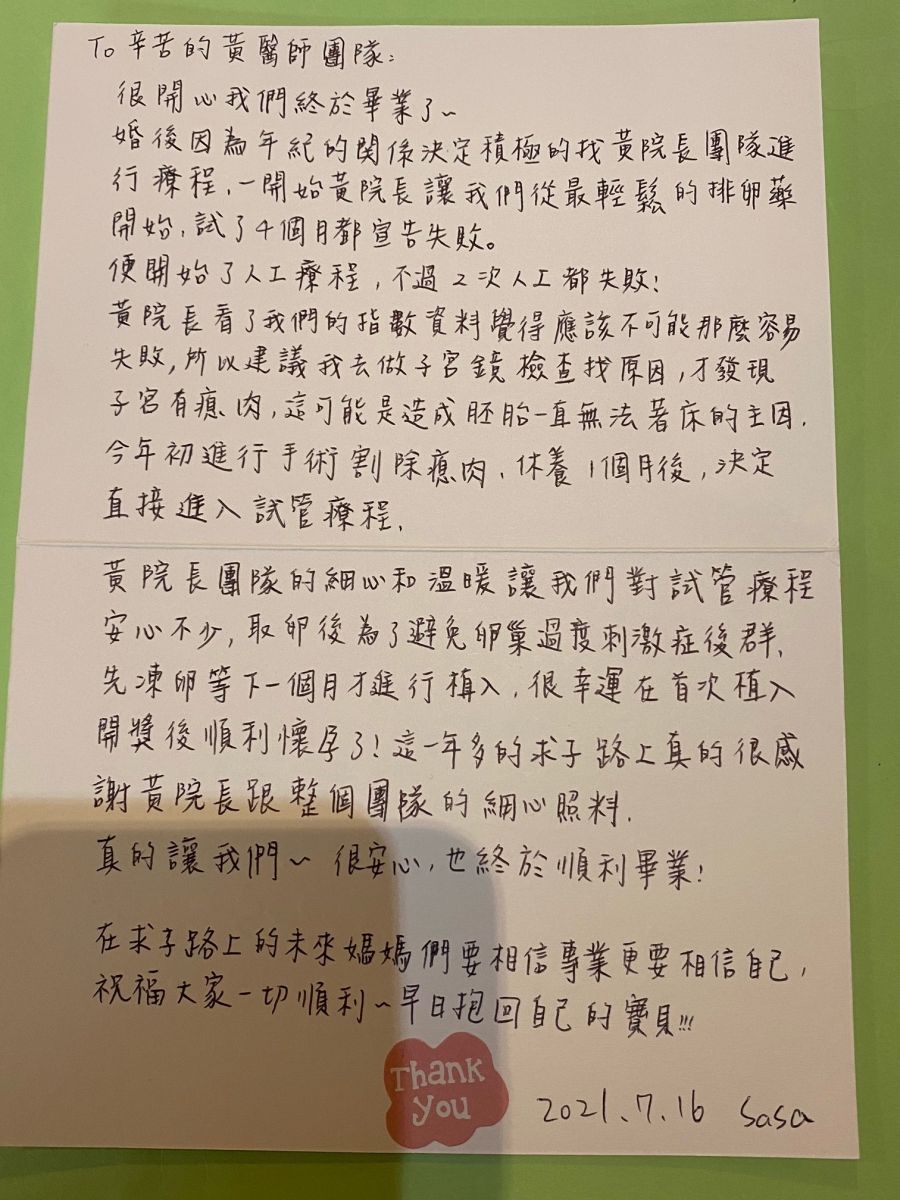 To 辛苦的黃醫師團隊:
很開心我們終於畢業了~
婚後因為年紀的関係決定積極的找黃院長團隊進
行療程,一開始黃院長讓我們從最輕鬆的排卵藥
開始,試了4個月都宣告失敗。
便開始了人工療程,不過2次人工都失敗!
黃院長看了我們的指數資料覺得應該不可能那麼容易
失敗,所以建議我去做子宮鏡檢查找原因,才發現
子宮有瘜肉,這可能是造成胚胎一直無法著床的主因.
今年初進行手術割除瘜肉,休養1個月後,決定
直接進入試管療程.
黃院長團隊的細心和溫暖讓我們對試管療程
安心不少,取卵後為了避免卵巢過度刺激症後群,
先凍卵等下一個月才進行植入,很幸運在首次植入
開獎後順利懷孕了!這一年多的求子路上真的很感
謝黃院長跟整個團隊的細心照料.
真的讓我們~ 很安心,也終於順利畢業!
在求子路上的未來媽媽們要相信專業更要相信自己,
祝福大家一切順利~早日抱回自己的寶貝!!!
Thank
you
2021.7.16 Sasa